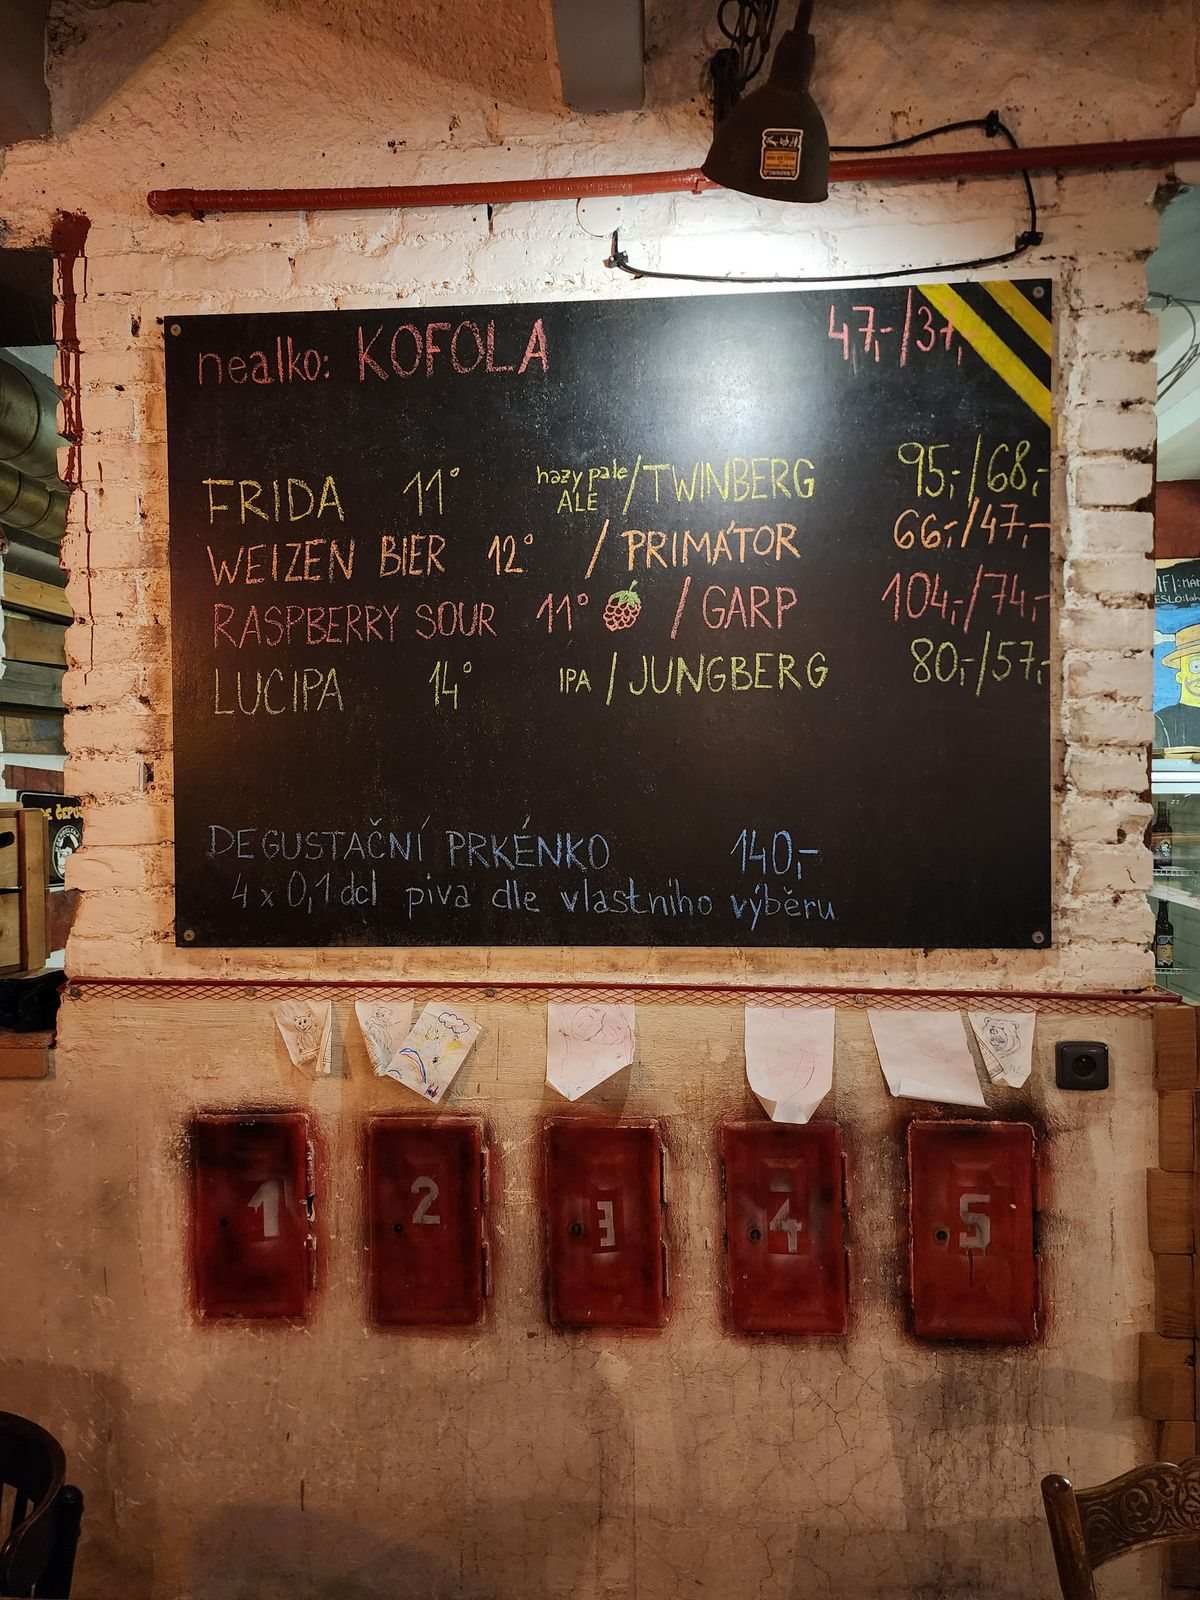 nealko: KOFOLA 47,-/37,-
FRIDA 11° hazy pale ALE / TWINBERG 95,-/68,-
WEIZEN BIER 12° / PRIMÁTOR 66,-/47,-
RASPBERRY SOUR 11° / GARP 104,-/74,-
LUCIPA 14° IPA / JUNGBERG 80,-/57,-
DEGUSTAČNÍ PRKÉNKO 140,-
4 x 0,1 dcl piva dle vlastního výběru
1 2 3 4 5